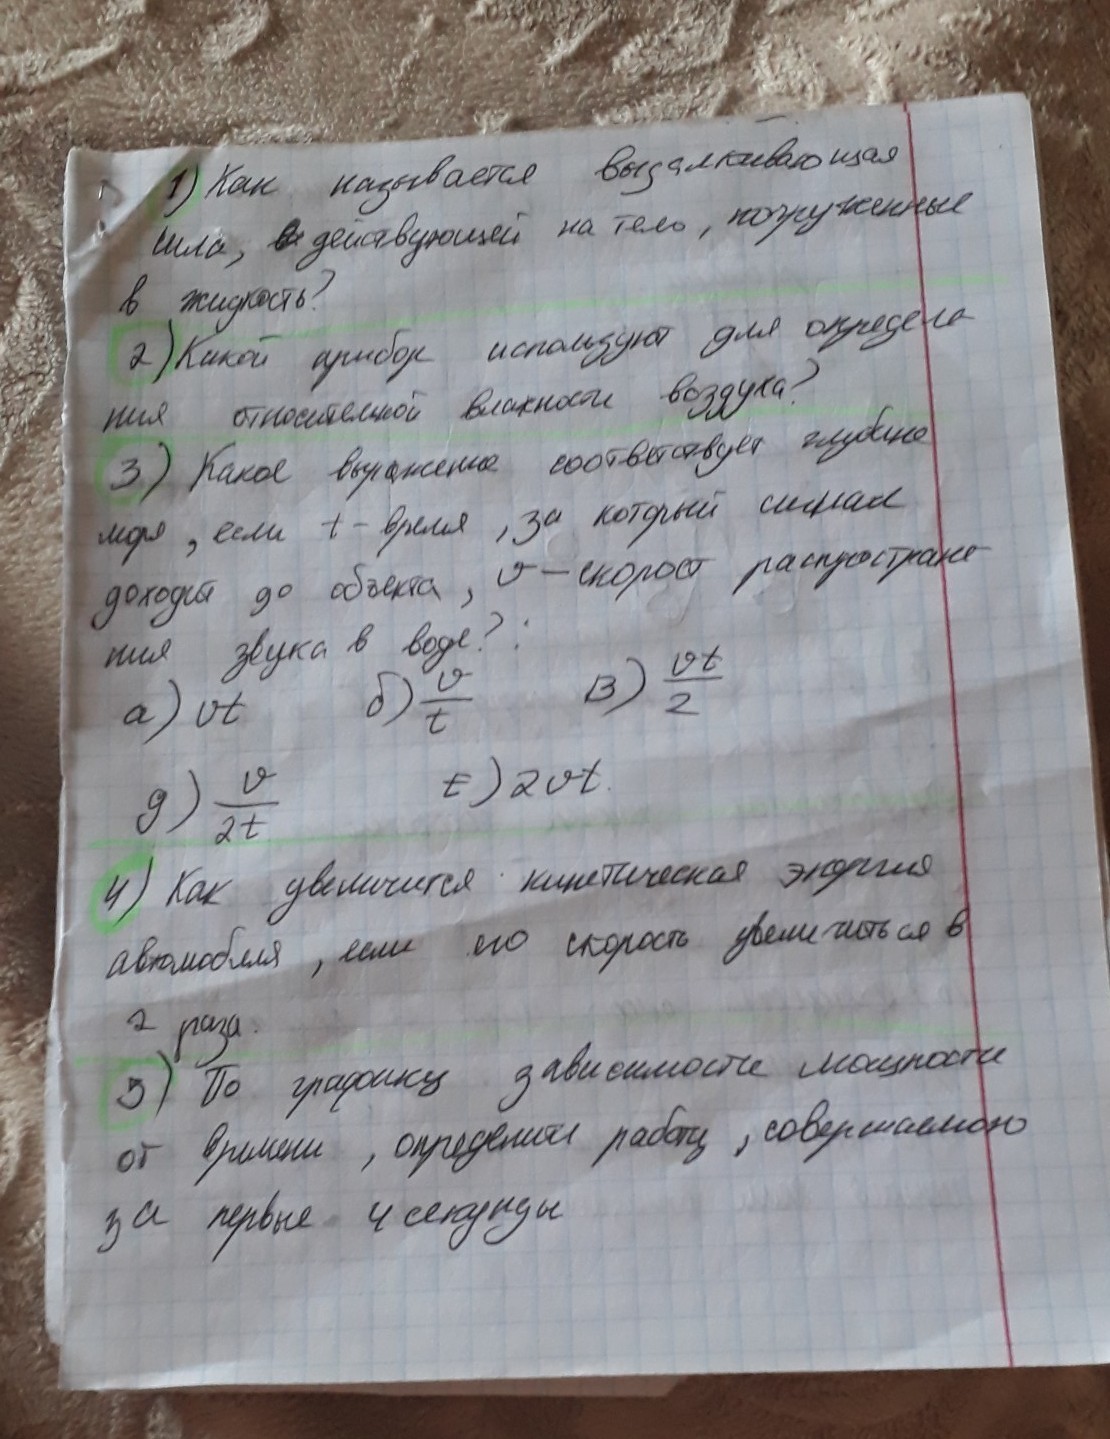 1) Как называется выталкивающая
сила, действующей на тело, погруженные
в жидкость?
2) Какой прибор используют для определе
ния относительной влажности воздуха?
3) Какое выражение соответствует глубине
моря, если t - время, за который сигнал
доходит до объекта, v - скорост распростране
ния звука в воде? :
а) vt б) v/t в) vt/2
д) v/2t е) 2vt.
4) Как увеличится кинетическая энергия
автомобиля, если его скорость увеличиться в
2 раза.
5) По графику зависимости мощности
от времени, определите работу, совершаемою
за первые 4 секунды